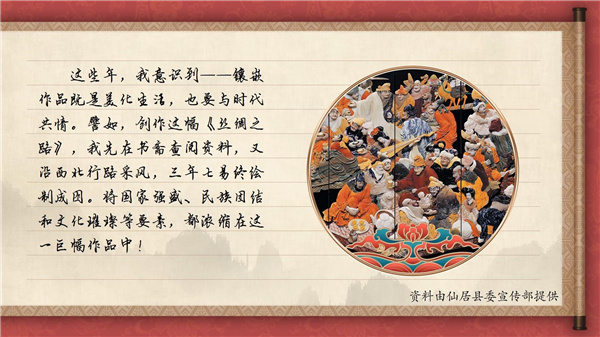 这些年，我意识到——镶嵌
作品既是美化生活，也要与时代
共情。譬如，创作这幅《丝绸之
路》，我先在书斋查阅资料，又
沿西北行路采风，三年七易终绘
制成图。将国家强盛、民族团结
和文化璀璨等要素，都浓缩在这
一巨幅作品中！
资料由仙居县委宣传部提供